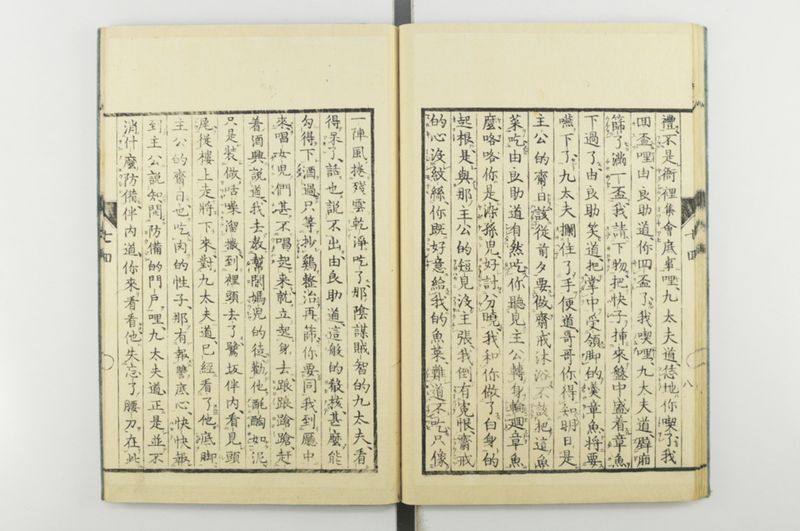 禮不是衙裡集會底事哩九太夫道恁地你喫了我
回盃哩由良助道你回盃了我喫哩九太夫道僻廂
篩了滿一盃我請下物把快子挿來盤中盛着章魚
下過了由良助笑道把掌中受領脚的嘆章魚將要
嚥下了九太夫攔住了手便道哥哥你得知明日是
主公的齋日該從前夕要做齋戒沐浴不該把這魚
菜吃由良助道自然吃你聽見主公轉身輪迴章魚
麼咯咯你是湥孫兒好討分曉我和你做了白身的
起根是與那主公的短見沒主張我倒有寃恨齋戒
的心沒紋絲你既好意給我的魚菜難道不吃只像
一陣風捲殘雲乾淨吃了那陰謀賊智的九太夫看
得呆了話也說不出由良助道這般的骸核甚麼能
勾得下酒過只等抄鷄整治再篩你要同我到廳中
來唱女児們甚不唱起來就立起身去踉踉蹌蹌赶
着酒興說道我去敎幇閒媽児的徒勸他酩酊如泥
只是裝做咕噪溜撒到裡頭去了鷺坂伴内看見頭
尾從樓上走將下來對九太夫道已經看了他底脚
主公的齋日也吃肉的性子那有報讐底心快快報
到主公說知閒防備的門戸哩九太夫道正是並不
消什麼防備伴内道你來看看他失忘了腰刀在此
七四
八